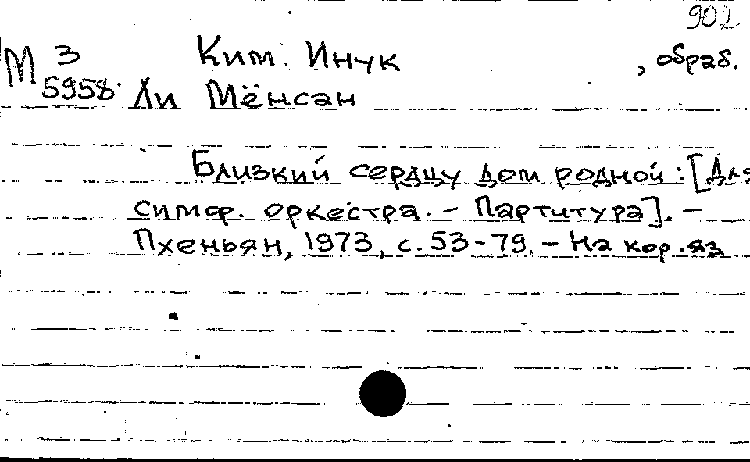 902
М 3 Ким Инук, обраб.
5958 Ли Мёнсан
Близкий сердцу дом родной: [Для
симф. оркестра. - Партитура]. -
Пхеньян, 1973, с. 53-79. - На кор. яз